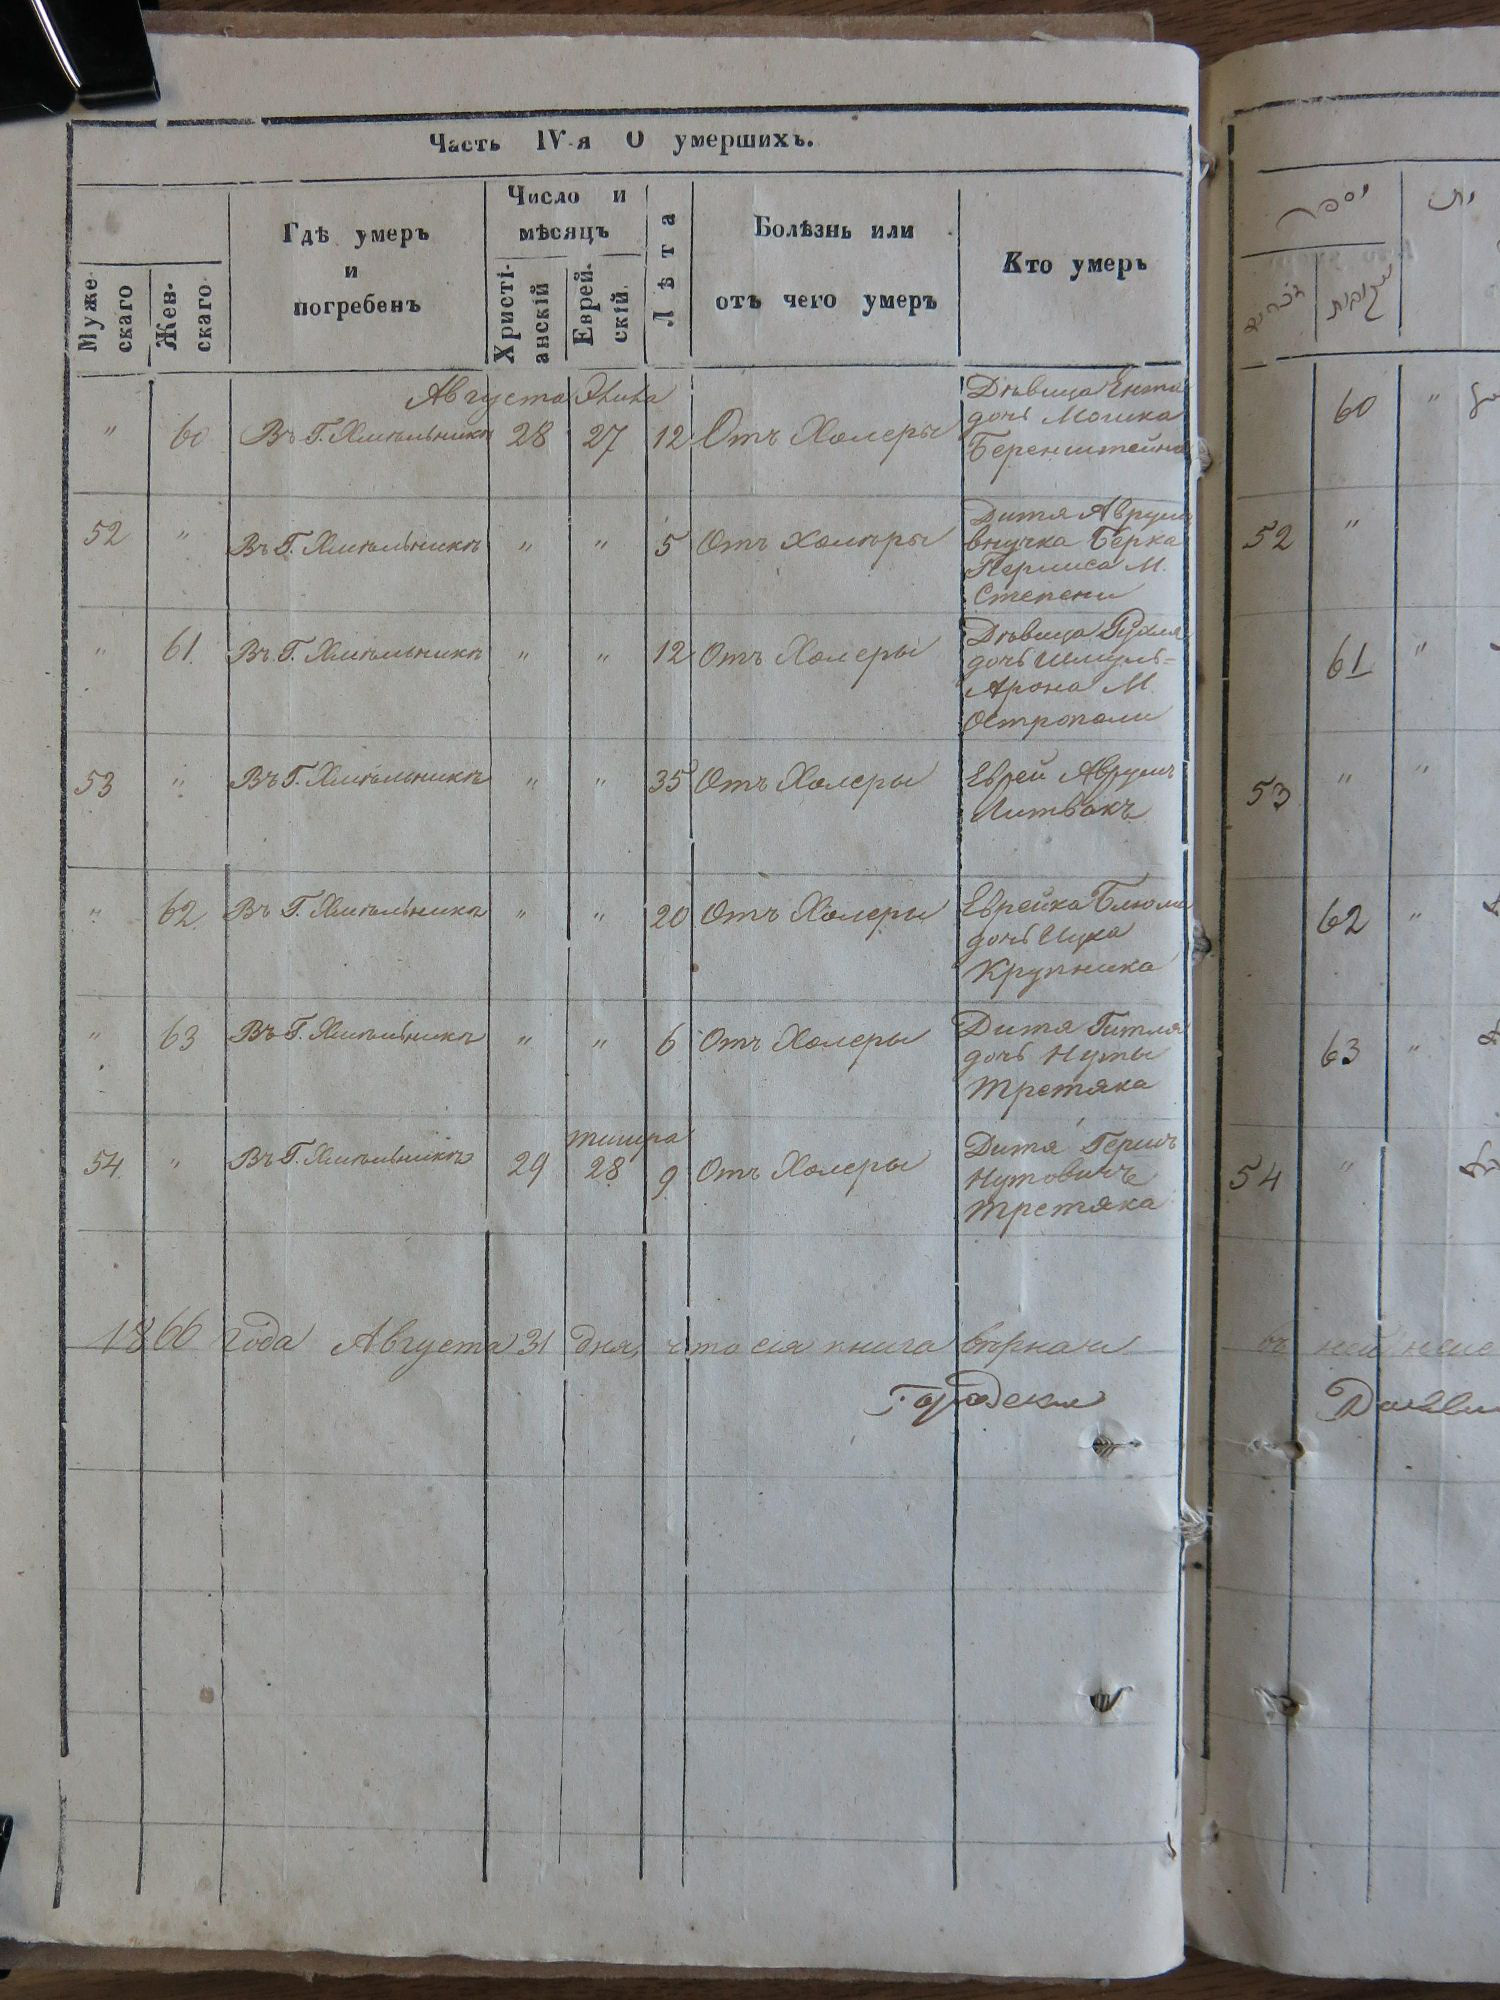 Часть IV-я О умершихъ.
Муже-
скаго
Жен-
скаго
Гдѣ умеръ
и
погребенъ
Число и
мѣсяцъ
Христі-
анскій
Еврей-
скій
Лѣта
Болѣзнь или
отъ чего умеръ
Кто умеръ
Августа Элила
" 60 Въ Г. Хмѣльникѣ 28 27 12 Отъ Холеры
Дѣвица Ента
дочь Мошка
Беренштейна
52 " Въ Г. Хмѣльникѣ " " 5 Отъ Холеры
Дитя Аврум
внучка Берка
М.
Степени
" 61 Въ Г. Хмѣльникѣ " " 12 Отъ Холеры
Дѣвица Рухля
дочь Шмуль=
Арона М.
Острополи
53 " Въ Г. Хмѣльникѣ " " 35 Отъ Холеры
Еврей Аврумъ
Литвакъ
" 62 Въ Г. Хмѣльникѣ " " 20 Отъ Холеры
Еврейка Блюма
дочь Ицка
Крупника
" 63 Въ Г. Хмѣльникѣ " " 6 Отъ Холеры
Дитя Гитля
дочь Нуты
Третяка
тишра
54 " Въ Г. Хмѣльникѣ 29 28 9 Отъ Холеры
Дитя Гершъ
Нутовичъ
Третяка
1866 года Августа 31 дня, что сія книга вѣрна и
Городской
מספר
זכרים
נקבות
60 "
52 "
61 "
53 " "
62 "
63 "
54 "
въ ней